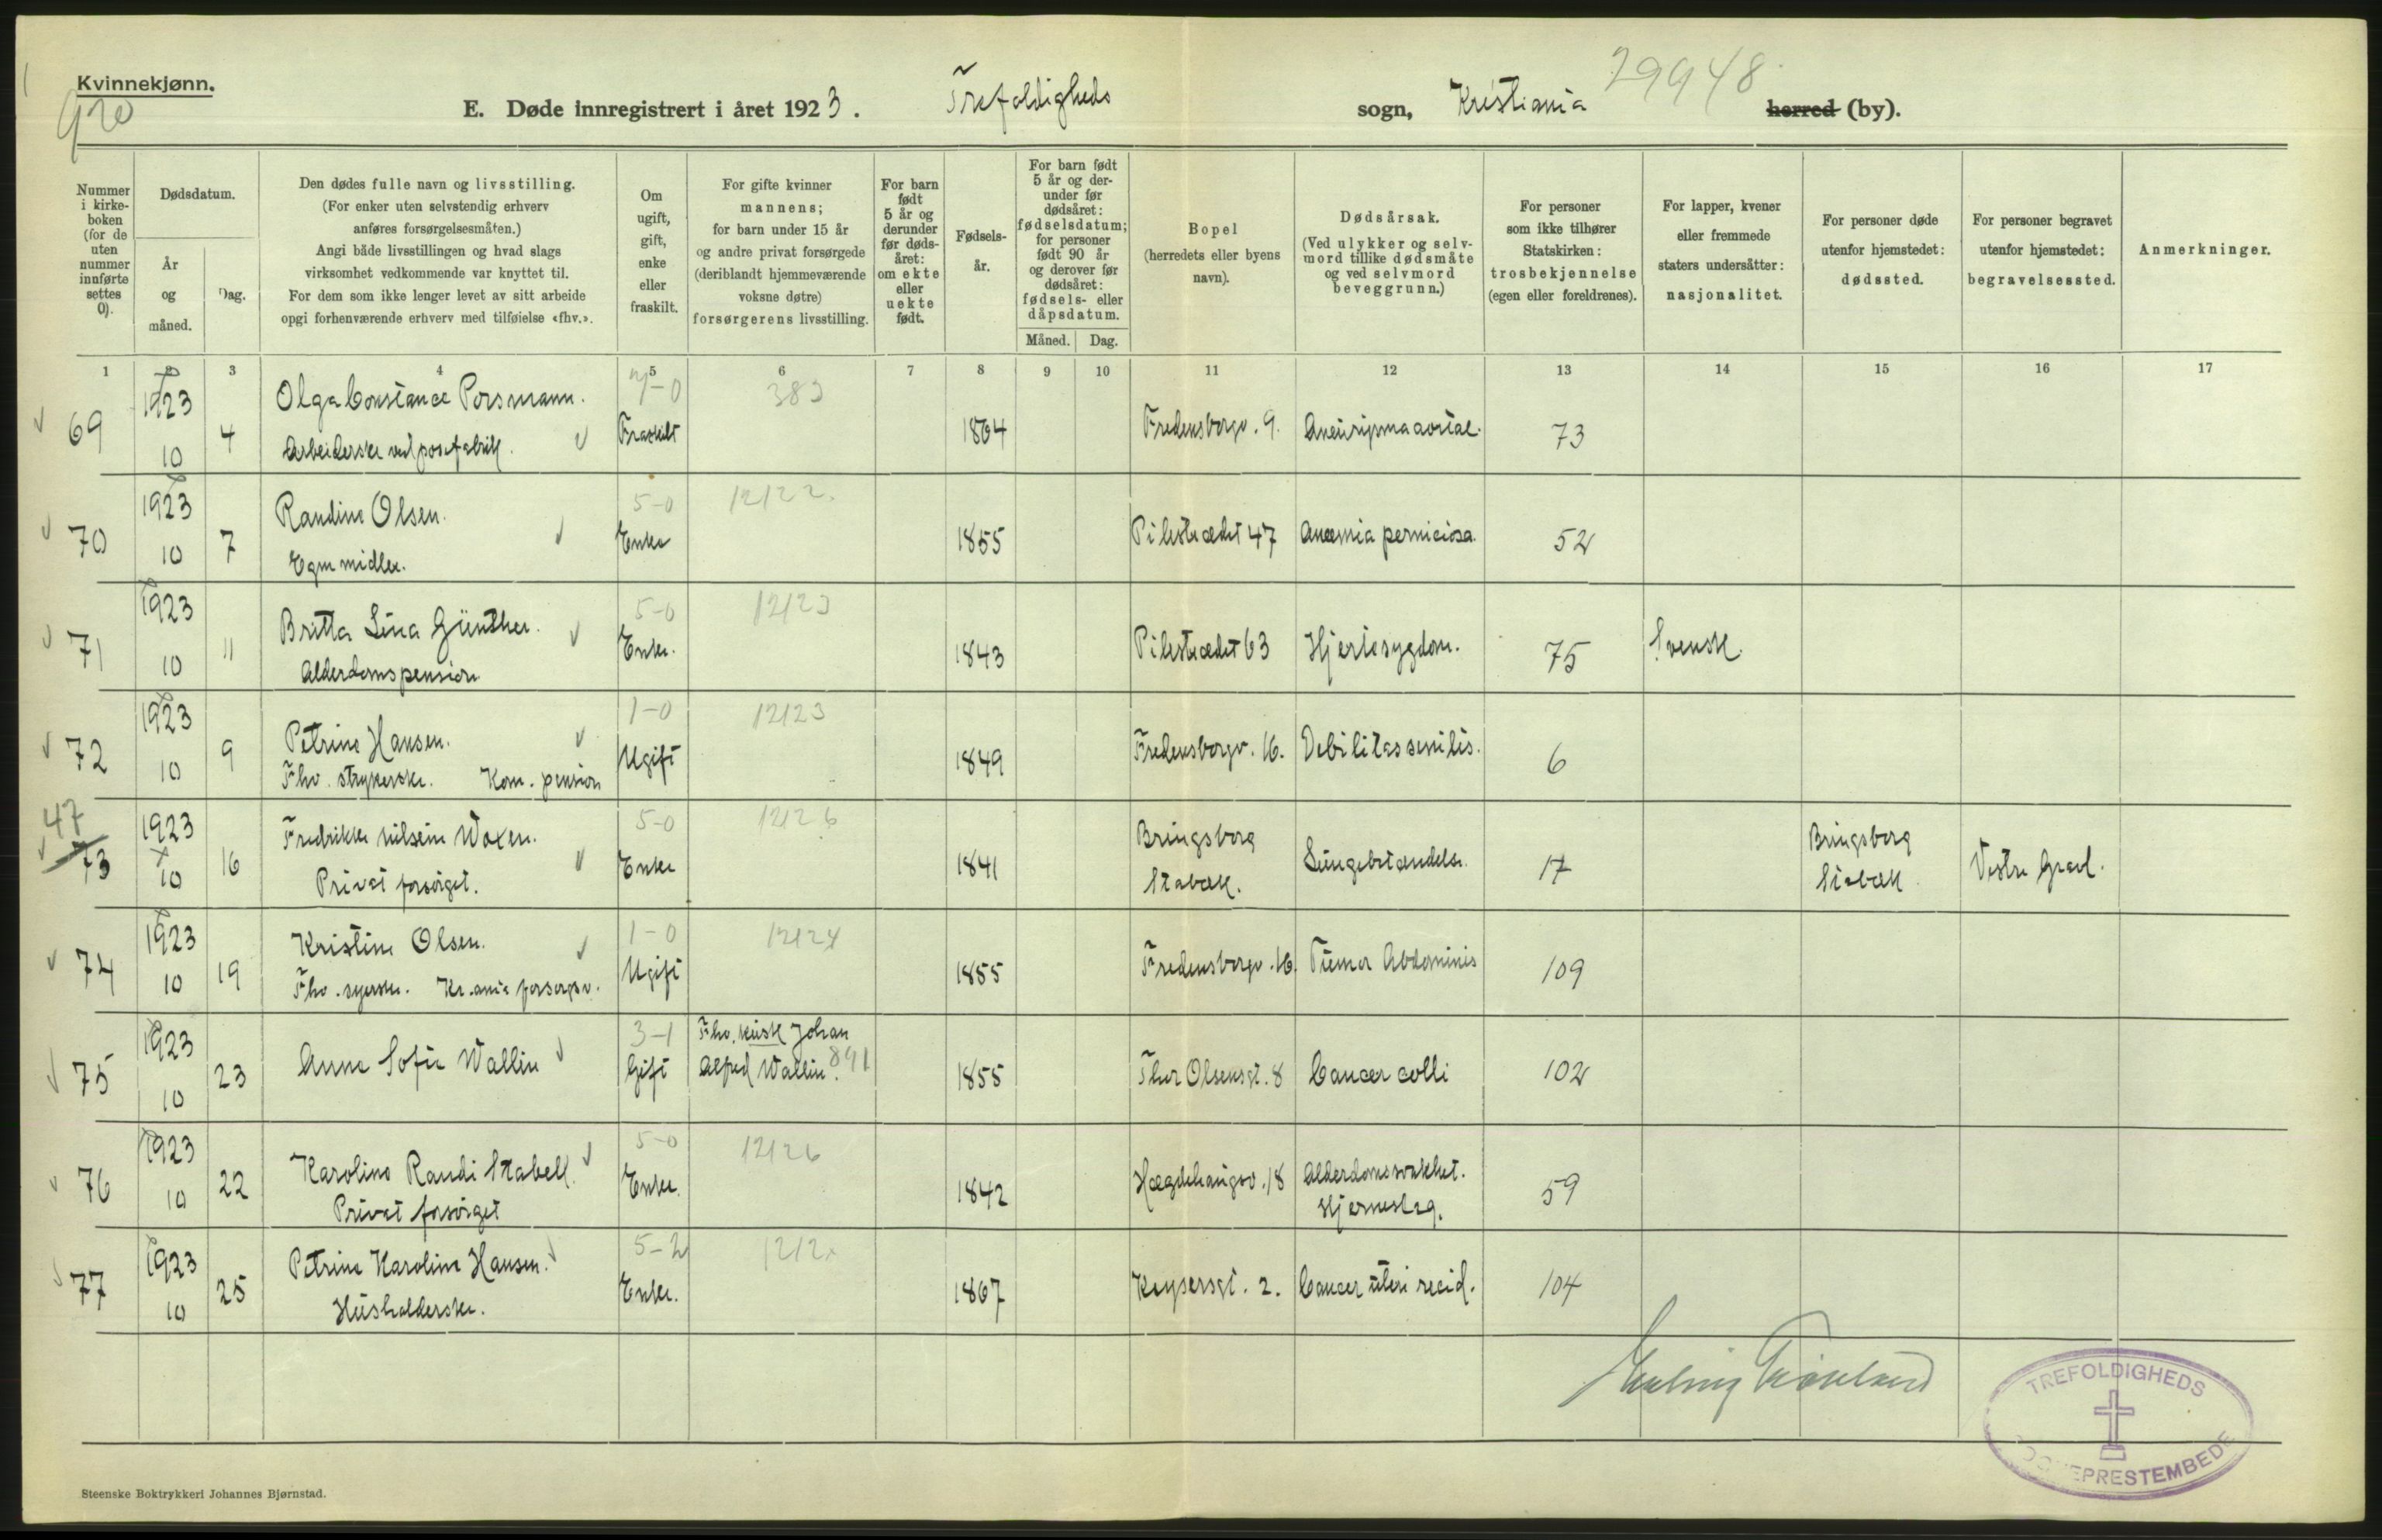 Kvinnekjønn.
970
E. Døde innregistrert i året 1923.
Trefoldigheds
sogn,
Kristiania
29948
herred (by).
Nummer i kirkeboken (for de uten nummer innførte settes 0).
Dødsdatum.
År og måned.
Dag.
Den dødes fulle navn og livsstilling.
(For enker uten selvstendig erhverv
anføres forsørgelsesmåten.)
Angi både livsstillingen og hvad slags
virksomhet vedkommende var knyttet til.
For dem som ikke lenger levet av sitt arbeide
opgi forhenværende erhverv med tilføielse «fhv.».
Om ugift, gift, enke eller fraskilt.
For gifte kvinner
mannens;
for barn under 15 år
og andre privat forsørgede
(deriblandt hjemmeværende
voksne døtre)
forsørgerens livsstilling.
For barn født 5 år og derunder før dødsåret: om ekte eller uekte født.
Fødsels-
år.
For barn født
5 år og der-
under før
dødsåret:
fødselsdatum;
for personer
født 90 år
og derover før
dødsåret:
fødsels- eller
dåpsdatum.
Måned.
Dag.
Bopel
(herredets eller byens
navn).
Dødsårsak.
(Ved ulykker og selv-
mord tillike dødsmåte
og ved selvmord
beveggrunn.)
For personer
som ikke tilhører
Statskirken:
trosbekjennelse
(egen eller foreldrenes).
For lapper, kvener
eller fremmede
staters undersåtter:
nasjonalitet.
For personer døde
utenfor hjemstedet:
dødssted.
For personer begravet
utenfor hjemstedet:
begravelsessted.
Anmerkninger.
1 2 3 4 5 6 7 8 9 10 11 12 13 14 15 16 17
69 1923 10 4 Olga Constance Porsmann. Arbeiderske ved posefabrikk. Fraskilt 383 1864 Fredensborgv. 9. Aneurisma aortae. 73
70 1923 10 7 Randine Olsen. Egne midler. 5-0 Enke 12122. 1855 Pilestrædet 47 Anæmia perniciosa. 52
71 1923 10 11 Britta Lina Günther. Alderdomspension 5-0 Enke. 12123 1843 Pilestrædet 63 Hjertesygdom. 75 Svensk.
72 1923 10 9 Petrine Hansen. Fhv. strykerske. Kom. pension 1-0 Ugift 12123 1849 Fredensborgv. 16. Debilitas senilis. 6
47 73 1923 10 16 Fredrikke Nilsine Woxen. Privat forsörget. 5-0 Enke 12126 1841 Bringsborg Stabæk. Lungebetændelse. 17 Bringsborg Stabæk Vestre Gravl.
74 1923 10 19 Kristine Olsen. Fhv. syerske. Kr.ania forsorgsv. 1-0 Ugift 12124 1855 Fredensborgv. 16. Tumor Abdominis 109
75 1923 10 23 Anna Sofie Wallin 3-1 Gift Fhv. kusk Johan Alfred Wallin. 891 1855 Thor Olsensgt. 8 Cancer colli 102
76 1923 10 22 Karoline Randi Stabell. Privat forsörget 5-0 Enke. 12126 1842 Hægdehaugsv. 18 Alderdomssvakhet. Hjerneslag. 59
77 1923 10 25 Petrine Karoline Hansen. Husholderske. 5-2 Enke. 1212. 1867 Keysersgt. 2. Cancer uteri recid. 104
TREFOLDIGHEDS
EPRESTEMBEDE
Steenske Boktrykkeri Johannes Bjørnstad.